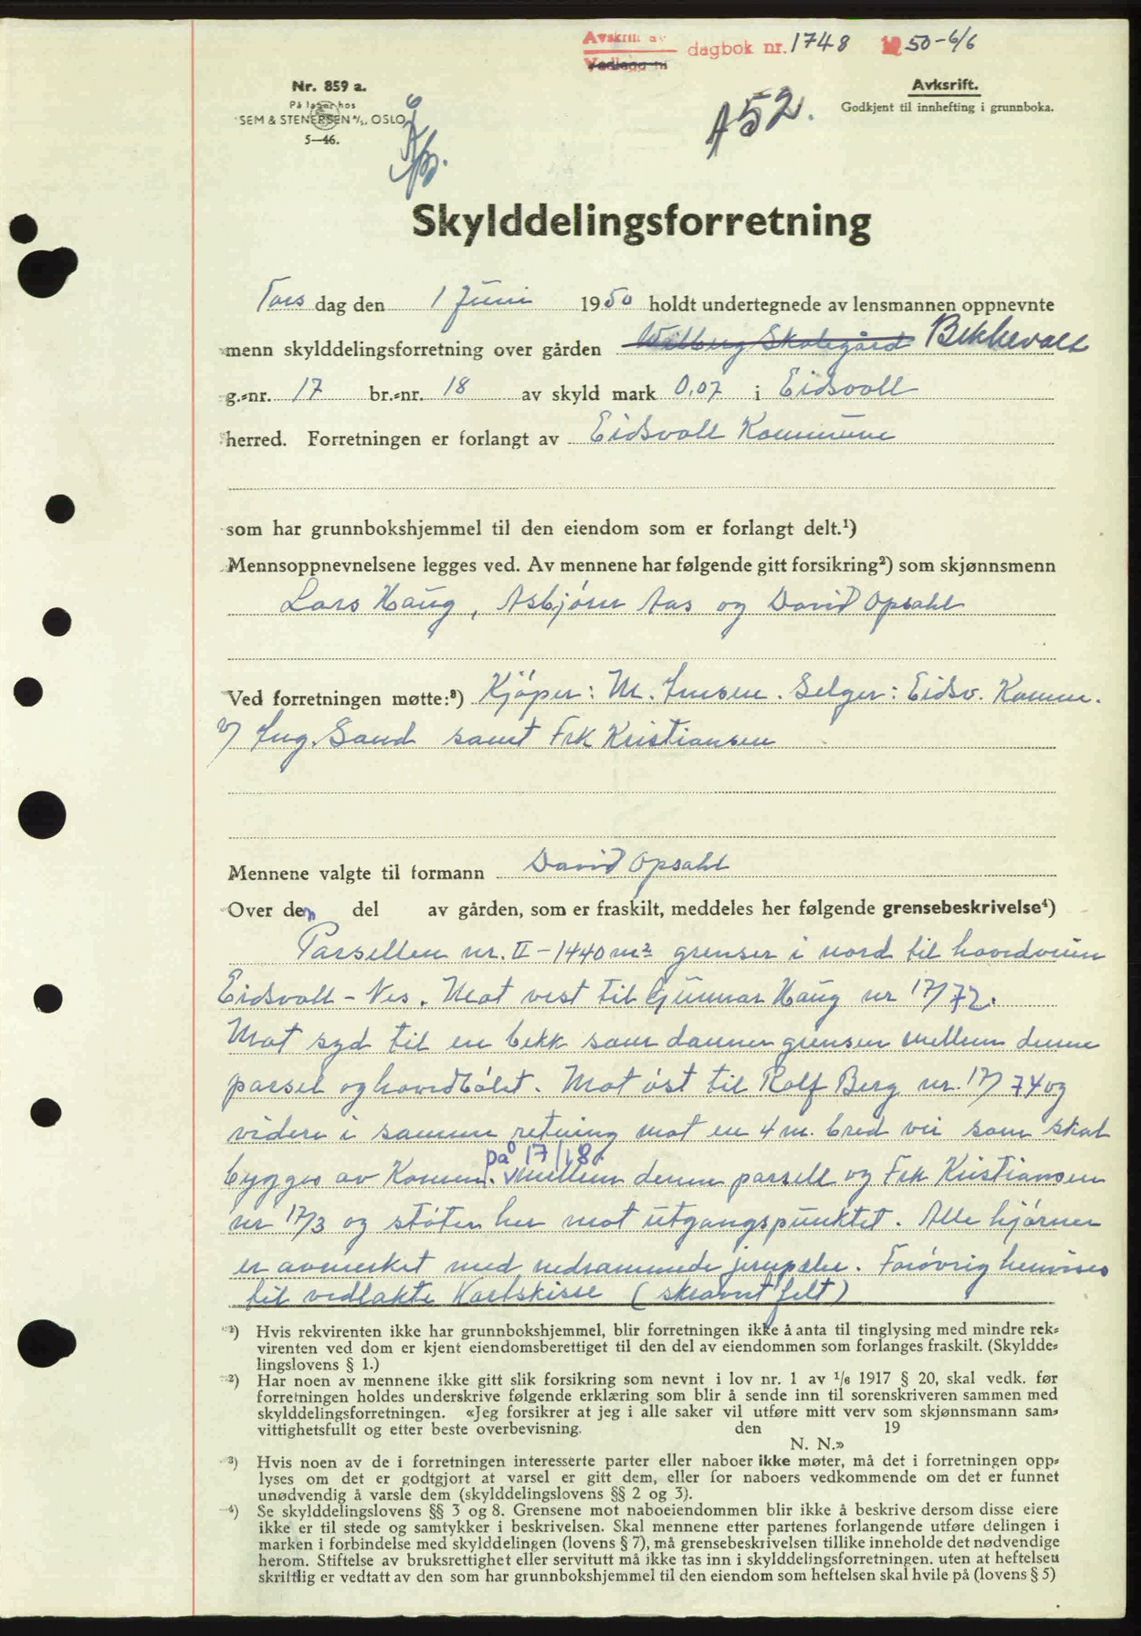 Avskrift av dagbok nr. 1748 1950-6/6
Vedlegg nr
Nr. 859 a.
På lager hos
SEM & STENERSEN A/S, OSLO
5—46.
Avksrift.
Godkjent til innhefting i grunnboka.
A52.
Skylddelingsforretning
Tors dag den 1 Juni 1950 holdt undertegnede av lensmannen oppnevnte
menn skylddelingsforretning over gården Wilberg Skolegård Bekkevold
g.-nr. 17 br.-nr. 18 av skyld mark 0,07 i Eidsvoll
herred. Forretningen er forlangt av Eidsvoll Kommune
som har grunnbokshjemmel til den eiendom som er forlangt delt.¹)
Mennsoppnevnelsene legges ved. Av mennene har følgende gitt forsikring²) som skjønnsmenn
Lars Haug, Asbjørn Aas og David Opsahl
Ved forretningen møtte:³) Kjøper: M. Jensen. Selger: Eidsv. Komm.
v/ Ing. Sand samt Frk Kristiansen
Mennene valgte til formann David Opsahl
Over den del av gården, som er fraskilt, meddeles her følgende grensebeskrivelse⁴)
Parsellen nr. II – 1440 m² grenser i nord til hovedveien
Eidsvoll – Nes. Mot vest til Gunnar Haug nr 17/72.
Mot syd til en bekk som danner grensen mellem denne
parsel og hovedbølet. Mot øst til Rolf Berg nr. 17/74 og
videre i samme retning mot en 4 m. bred vei som skal
på 17/18
bygges av Komm. v mellem denne parsell og Frk Kristiansen
nr 17/3 og støter her mot utgangspunktet. Alle hjørner
er avmerket med nedrammede jernpæler. Forøvrig henvises
til vedlakte Kartskisse (skravert felt)
¹) Hvis rekvirenten ikke har grunnbokshjemmel, blir forretningen ikke å anta til tinglysing med mindre rek-
virenten ved dom er kjent eiendomsberettiget til den del av eiendommen som forlanges fraskilt. (Skyldde-
lingslovens § 1.)
²) Har noen av mennene ikke gitt slik forsikring som nevnt i lov nr. 1 av 1/6 1917 § 20, skal vedk. før
forretningen holdes underskrive følgende erklæring som blir å sende inn til sorenskriveren sammen med
skylddelingsforretningen. «Jeg forsikrer at jeg i alle saker vil utføre mitt verv som skjønnsmann sam-
vittighetsfullt og etter beste overbevisning. den 19
N. N.»
³) Hvis noen av de i forretningen interesserte parter eller naboer ikke møter, må det i forretningen opp-
lyses om det er godtgjort at varsel er gitt dem, eller for naboers vedkommende om det er funnet
unødvendig å varsle dem (skylddelingslovens §§ 2 og 3).
⁴) Se skylddelingslovens §§ 3 og 8. Grensene mot naboeiendommen blir ikke å beskrive dersom disse eiere
ikke er til stede og samtykker i beskrivelsen. Skal mennene etter partenes forlangende utføre delingen i
marken i forbindelse med skylddelingen (lovens § 7), må grensebeskrivelsen tillike inneholde det nødvendige
herom. Stiftelse av bruksrettighet eller servitutt må ikke tas inn i skylddelingsforretningen. uten at heftelsen
skriftlig er vedtatt av den som har grunnbokshjemmel til den eiendom som heftelsen skal hvile på (lovens § 5)